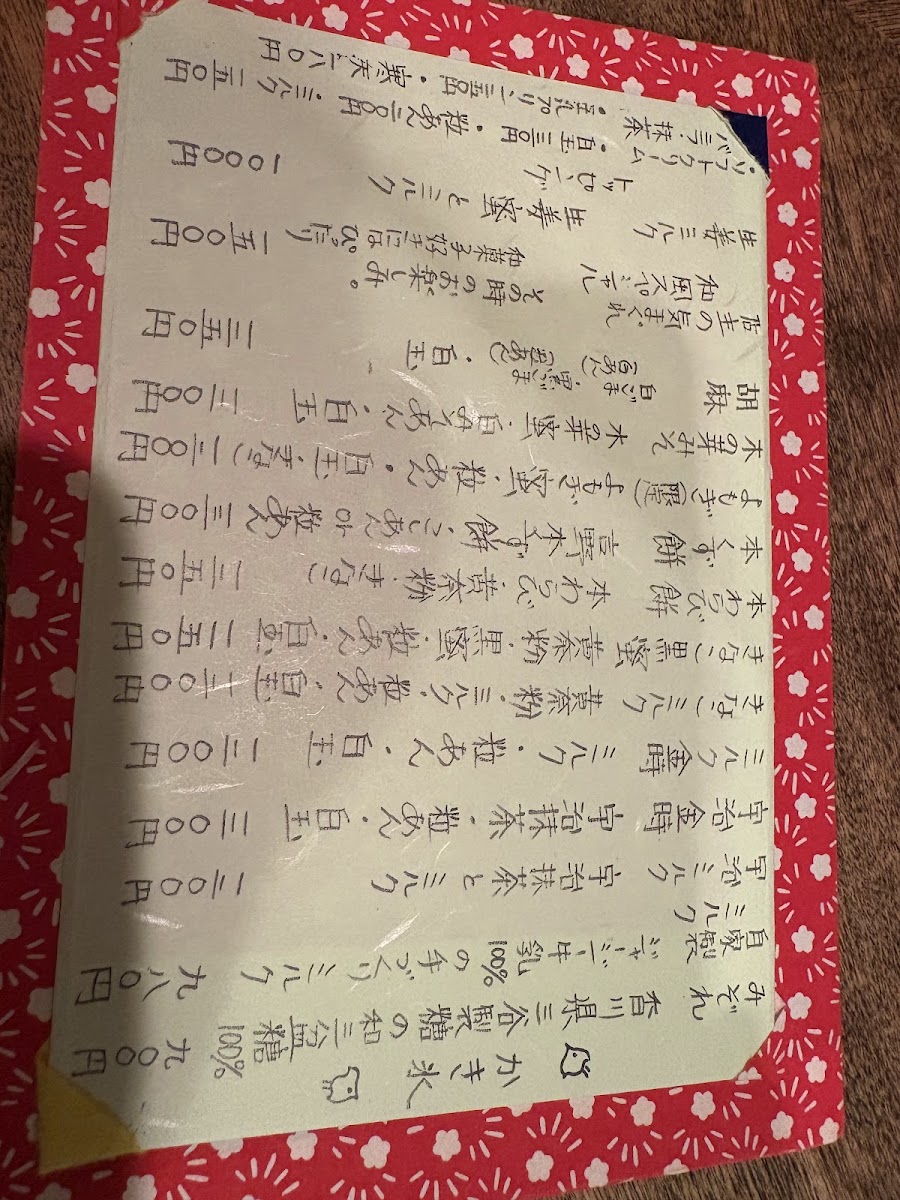 かき氷
みぞれ 香川県三谷製糖の和三盆糖100% 九〇〇円
自家製ミルク ジャージー牛乳100%の手づくりミルク 九八〇円
宇治ミルク 宇治抹茶とミルク 一二〇〇円
宇治金時 宇治抹茶・粒あん・白玉 一三〇〇円
ミルク金時 ミルク・粒あん・白玉 一二〇〇円
きなこミルク 黄奈粉・ミルク・粒あん・白玉 一二〇〇円
きなこ黒蜜 黄奈粉・黒蜜・粒あん・白玉 一二五〇円
本わらび餅 本わらび・黄奈粉(きなこ) 一三五〇円
本くず餅 吉野本くず餅・こしあんor粒あん 一三〇〇円
よもぎ(限定) よもぎ蜜・粒あん・白玉・きなこ 一二八〇円
木の芽みそ 木の芽蜜・白みそあん・白玉 一三〇〇円
胡麻 白ごま(白あん)・黒ごま(黒あん)・白玉 一三五〇円
店主の気まぐれ その時のお楽しみ。
和風スペシャル 和菓子好きにはぴったり 一五〇〇円
生姜ミルク 生姜蜜とミルク 一〇〇〇円
トッピング
・ソフトクリーム ・白玉 三〇円 ・粒あん 二〇〇円 ・ミルク 一五〇円
バニラ・抹茶 ・豆乳プリン 二五〇円 ・寒天 一八〇円